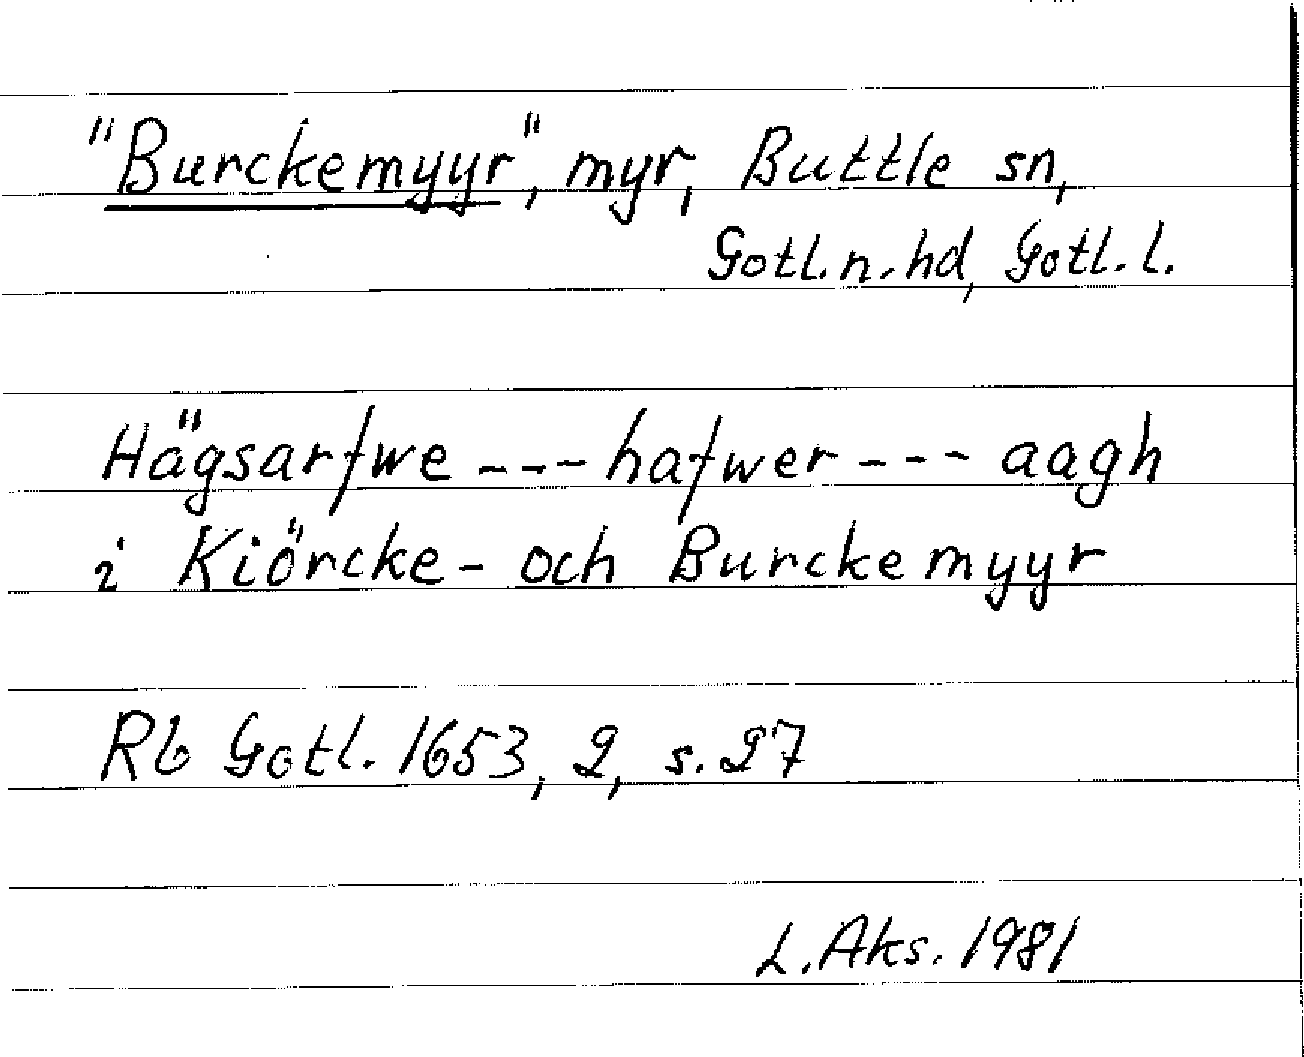 "Burckemyyr", myr, Buttle sn,
Gotl. n. hd, Gotl. l.
Hägsarfwe --- hafwer --- aagh
i Kiörcke- och Burckemyyr
Rb Gotl. 1653, 2, s. 27
L. Aks. 1981